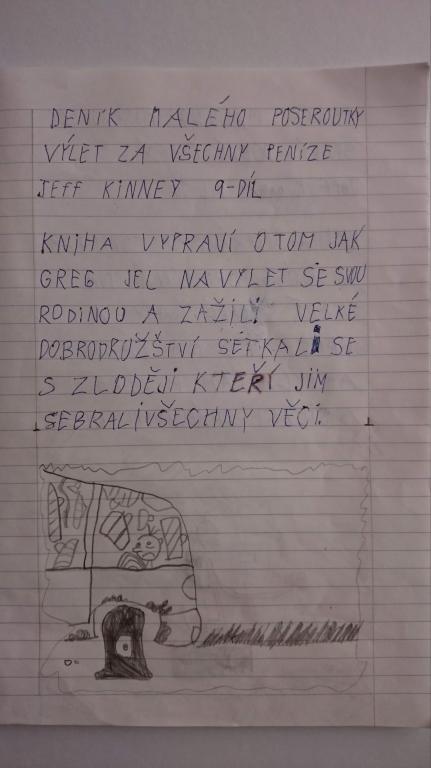 DENÍK MALÉHO POSEROUTKY
VÝLET ZA VŠECHNY PENÍZE
JEFF KINNEY 9-DÍL
KNIHA VYPRAVÍ O TOM JAK
GREG JEL NA VÝLET SE SVOU
RODINOU A ZAŽILI VELKÉ
DOBRODRUŽSTVÍ SETKALI SE
S ZLODĚJI KTEŘÍ JIM
SEBRALI VŠECHNY VĚCI.